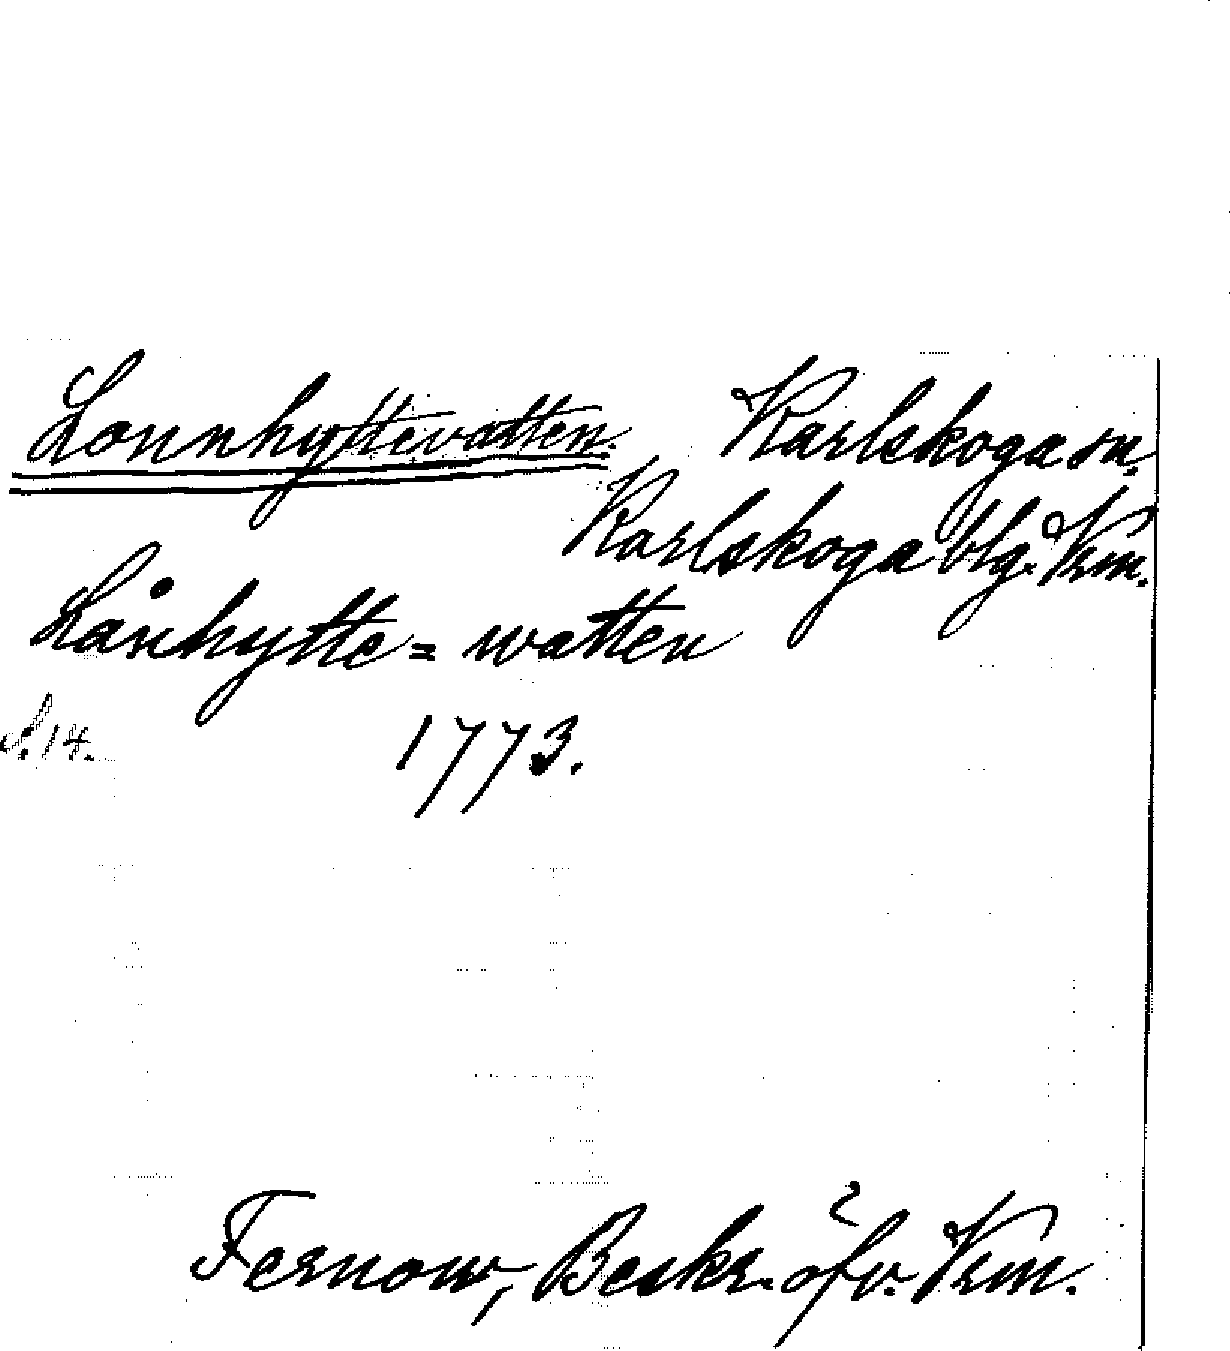 Lonnhyttevatten. Karlskoga sn.
Karlskoga blg. Vrm.
Lånhytte= watten
S. 14. 1773.
Fernow, Beskr. öfv. Vrm.